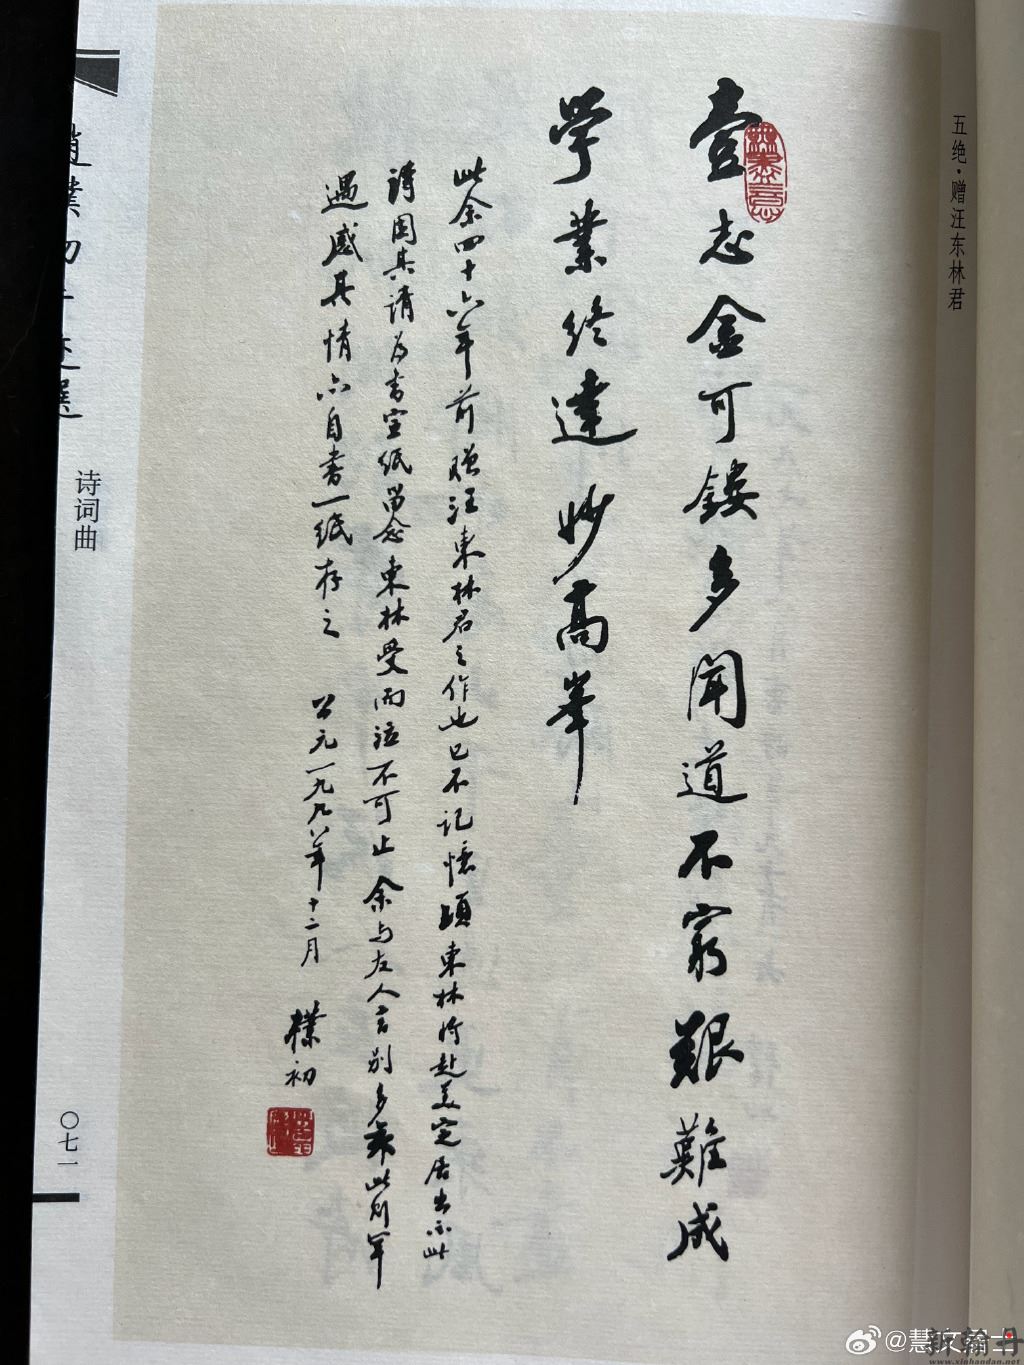 五绝·赠汪东林君
壹志金可镂多闻道不穷艰難成
学業终達妙高峯
此余四十六年前赠汪東林君之作也已不记憶頃東林将赴美定居出示此
诗因其请为书宣纸留念東林受而泣不可止余与友人言别多矣此则罕
遇感其情亦自書一纸存之 公元一九九八年十二月
樸初
趙樸初
诗词曲
〇七一
@慧文翰士
新翰丹
www.xinhandan.net